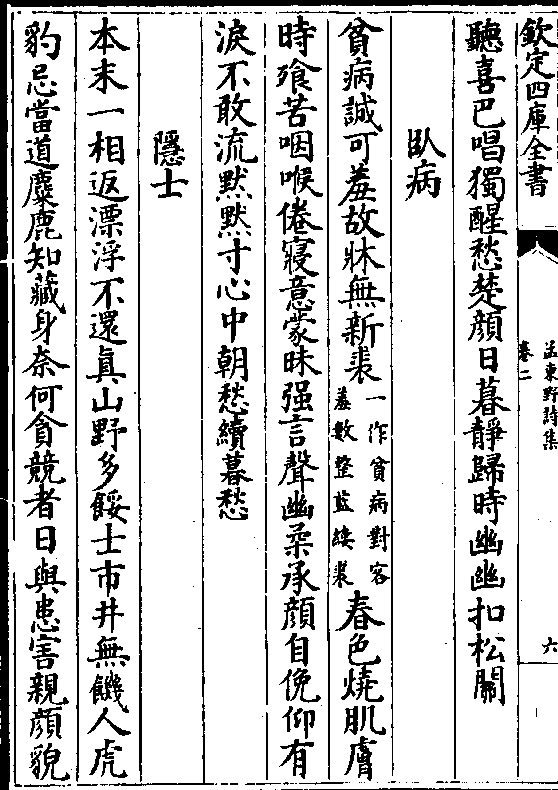 欽定四庫全書
孟東野詩集
卷二
六
聽喜巴唱獨醒愁楚顔日暮靜歸時幽幽扣松關
臥病
貧病誠可羞故牀無新裘一作貧病對客羞數整藍縷裘春色燒肌膚
時飱苦咽喉倦寢意蒙昧强言聲幽柔承顔自俛仰有
淚不敢流黙黙寸心中朝愁續暮愁
隱士
本末一相返漂浮不還眞山野多餒士市井無饑人虎
豹忌當道麋鹿知藏身奈何貪競者日與患害親顔貌